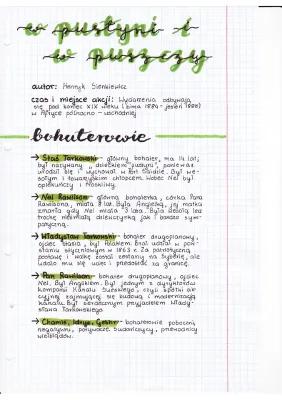 w pustyni i
w puszczy
autor: Henryk Sienkiewicz
czas i miejsce akcji: Wydarzenia odbywają
się pod koniec XIX wieku (zima 1884 - jesień 1885)
w Afryce północno - wschodniej
bohaterowie
→ Staś Tarkowski - główny bohater, ma 14 lat;
był nazywany "dzieckiem pustyni", ponieważ
urodził się i wychował w Port Saidzie. Był we-
sołym i towarzyskim chłopcem. Wobec Nel był
opiekuńczy i troskliwy.
→ Nel Rawlison - główna bohaterka, córka Pana
Rawlisona, miała 8 lat. Była Angielką, jej matka
zmarła gdy Nel miała 3 lata. Była
trochę nieśmiałą dziewczynką, jak i bardzo sym-
patyczną.
→ Władysław Tarkowski - bohater drugoplanowy,
ojciec Stasia, był Polakiem. Brał udział w pow-
staniu styczniowym w 1863 r. Za patriotyczną
postawę i walkę został zesłany na Syberię, ale
udało mu się uciec i przedostać za granicę.
→ Pan Rawlison - bohater drugoplanowy, ojciec
Nel. Był Anglikiem. Był jednym z dyrektorów
Kompanii Kanału Sueskiego, czyli spółki ak-
cyjnej zajmującej się budową i modernizacją
kanału. Był serdecznym przyjacielem Włady-
sława Tarkowskiego
→ Chamis, Idrys, Gebhr - bohaterowie poboczni,
negatywni, porywacze. Sudańczycy, przewodnicy
wielbłądów.